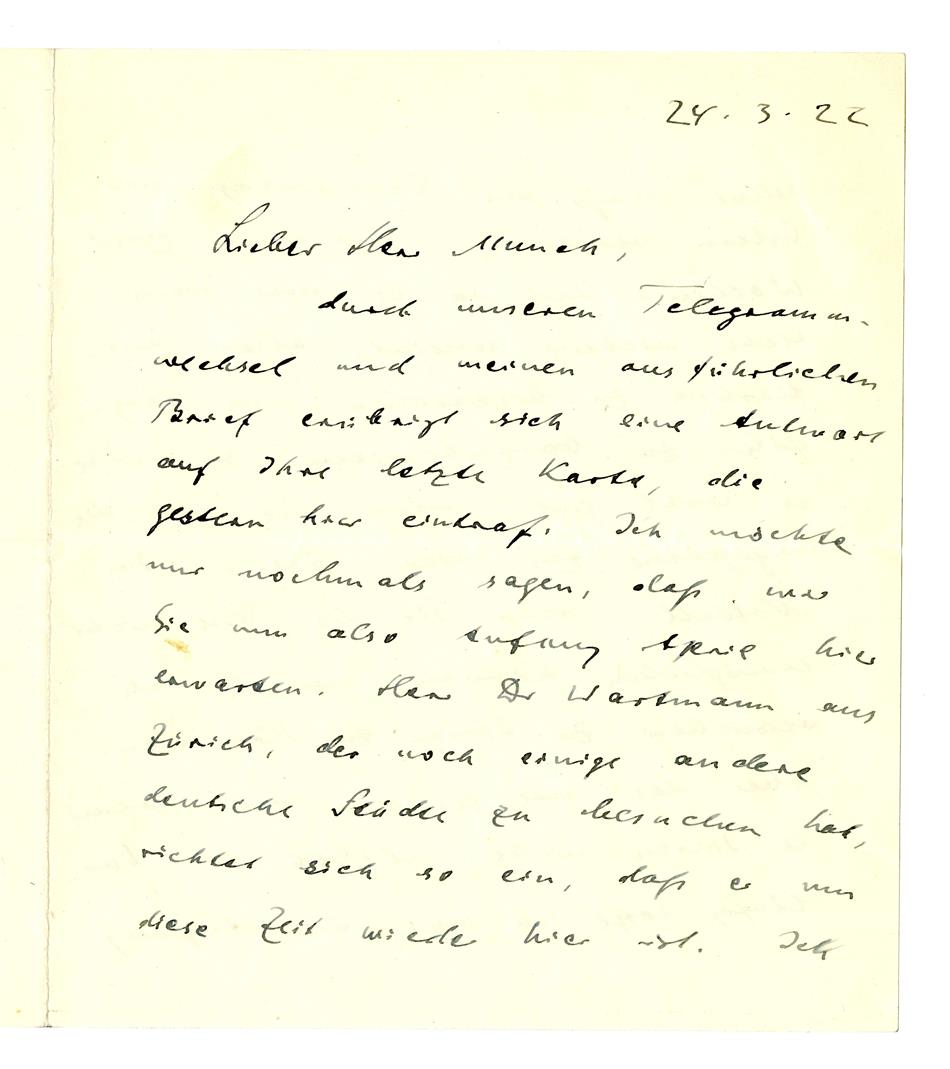 24. 3. 22
Lieber Herr Munch,
durch unseren Telegramm-
wechsel und meinen ausführlichen
Brief erübrigt sich eine Antwort
auf Ihre letzte Karte, die
gestern hier eintraf. Ich möchte
nur nochmals sagen, daß wir
Sie nun also Anfang April hier
erwarten. Herr Dr Wartmann aus
Zürich, der noch einige andere
deutsche Städte zu besuchen hat,
richtet sich so ein, daß er um
diese Zeit wieder hier ist. Ich